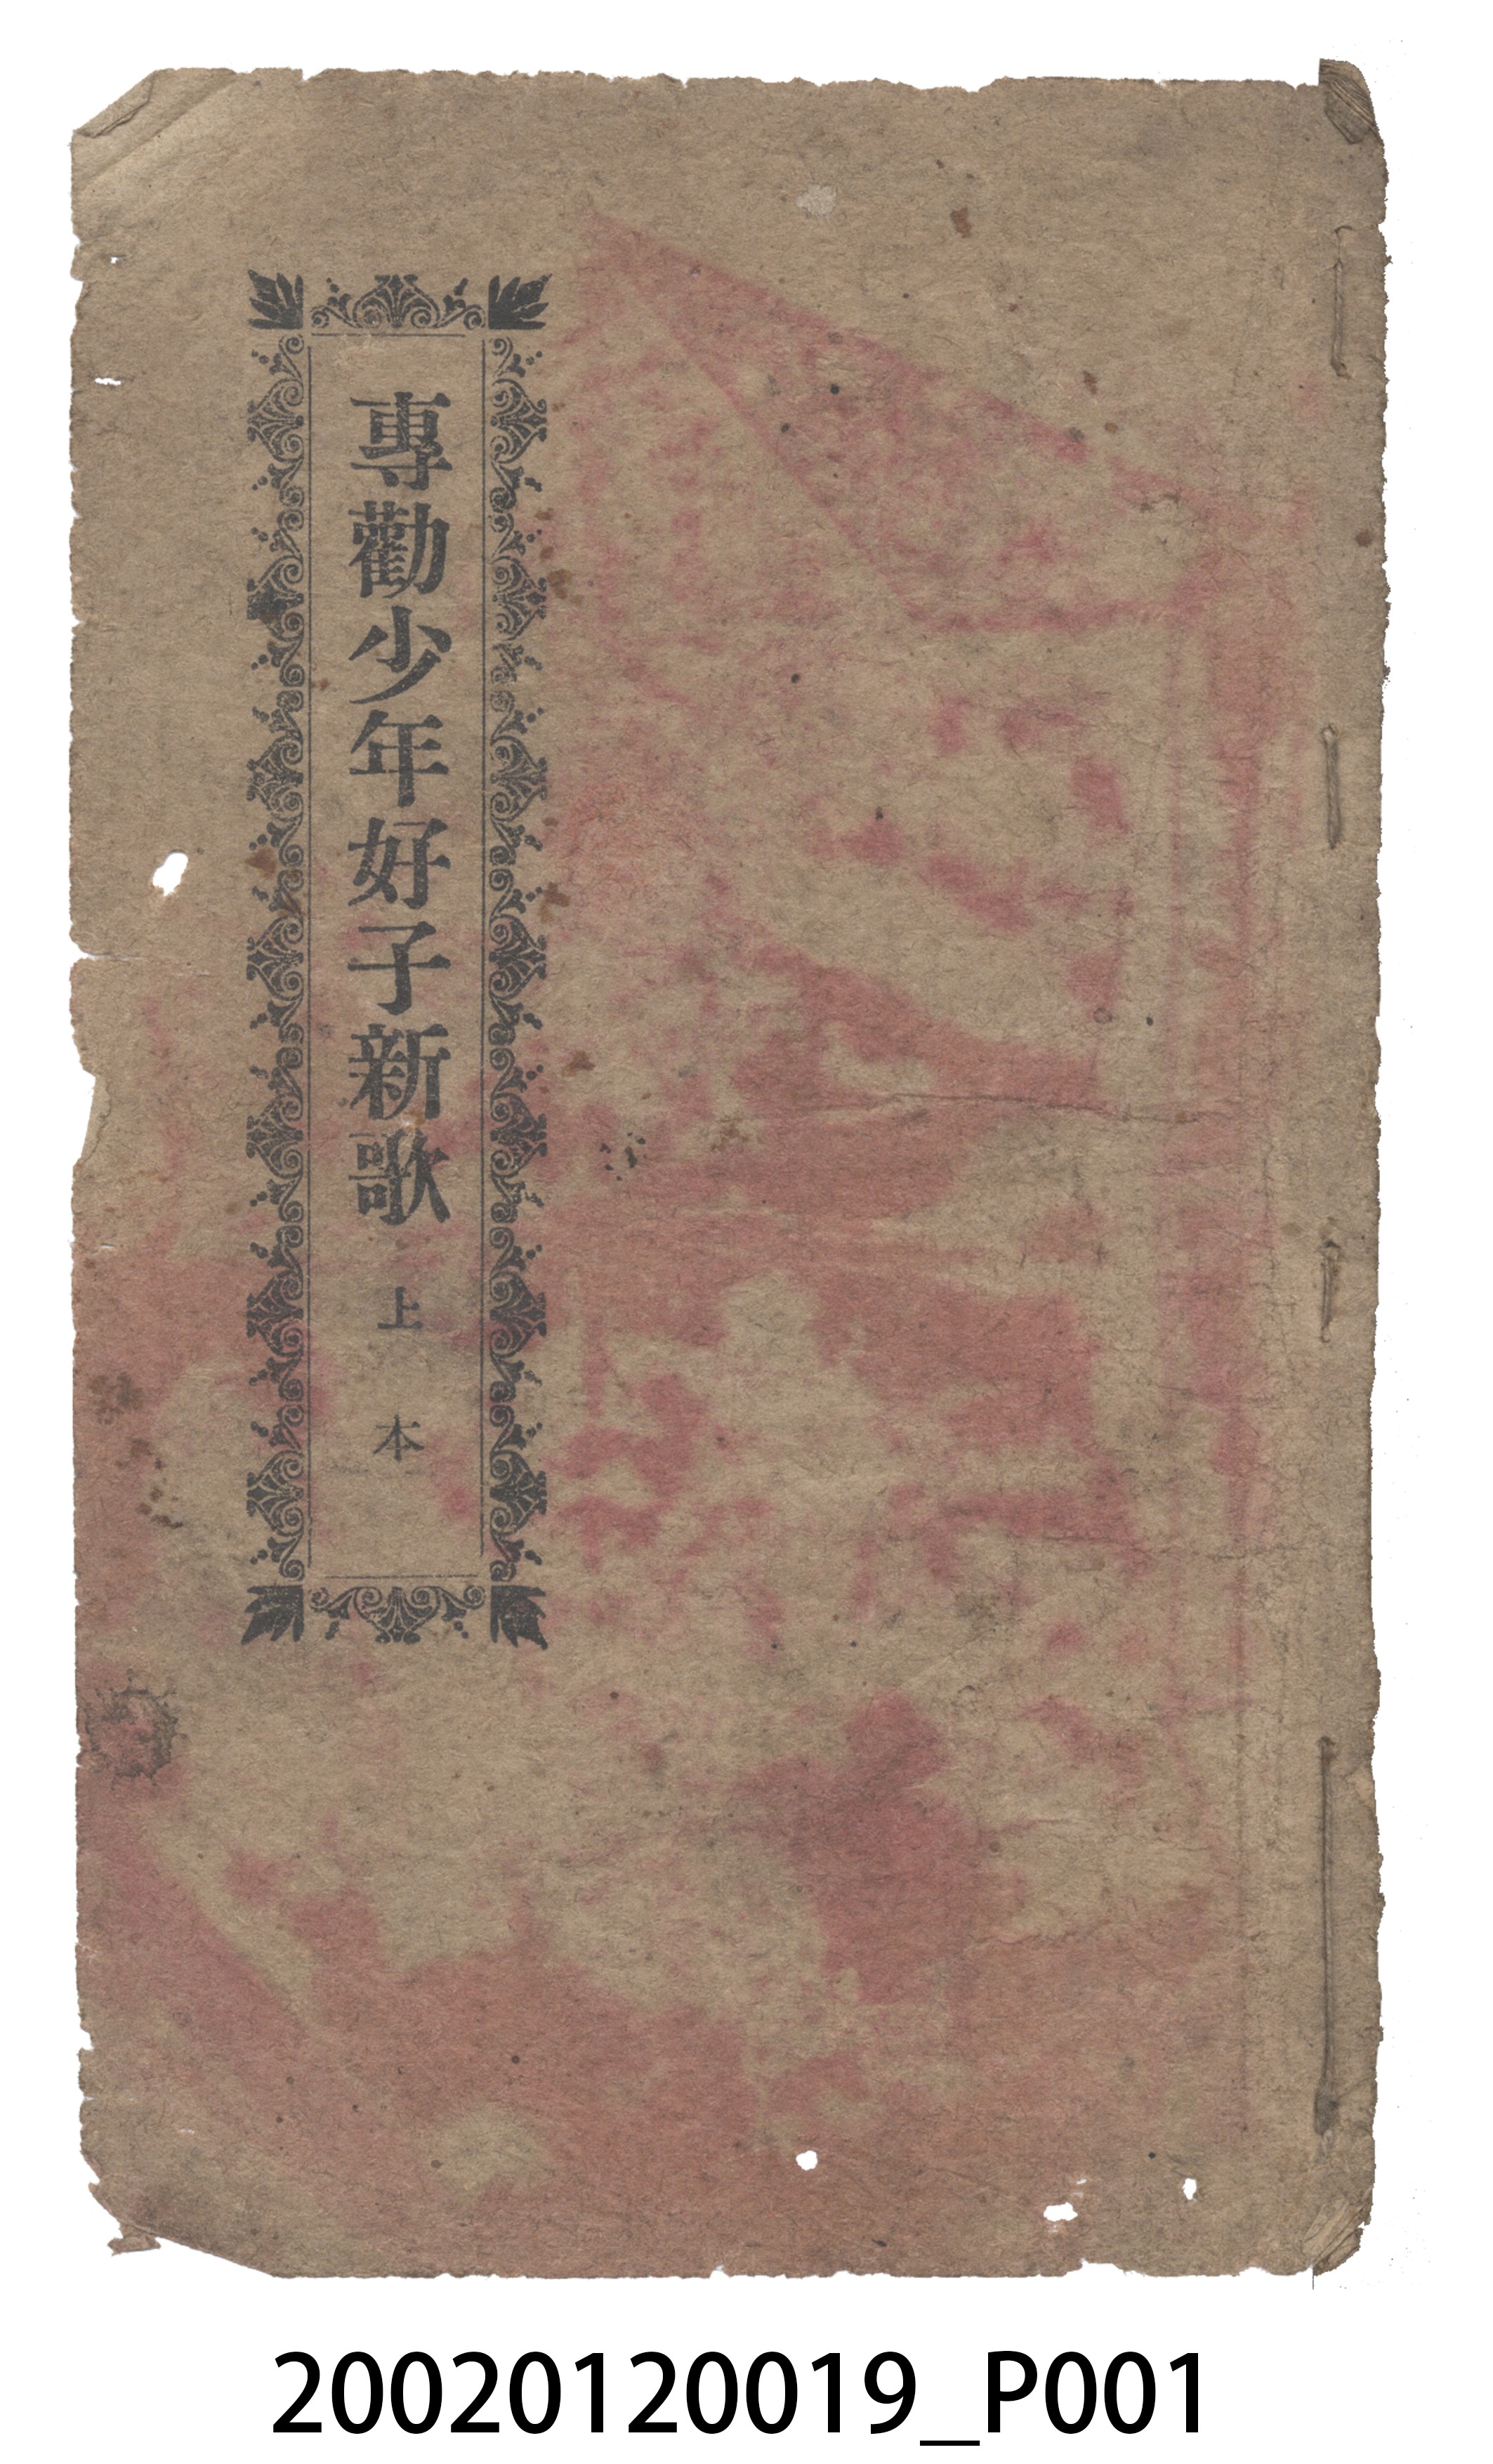 專勸少年好子新歌 上本
20020120019_P001